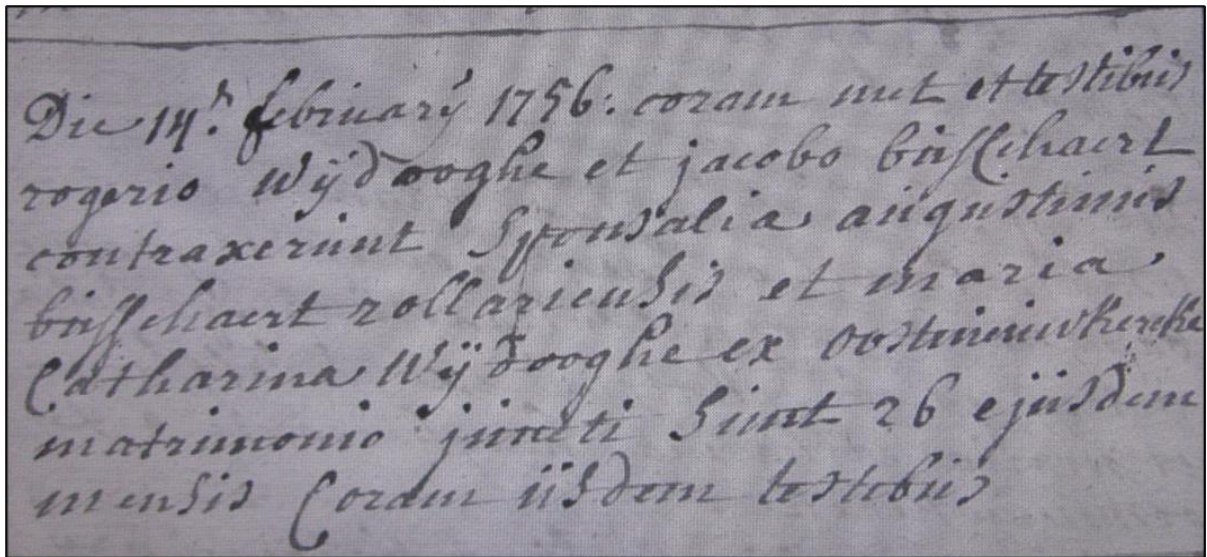 Die 14.ᵃ februarÿ 1756: coram met et testibus
rogerio Wÿdooghe et jacobo busschaert
contraxerunt Sponsalia augustinus
busschaert rollariensis et maria
Catharina Wÿdooghe ex oostnieuwkercke
matrimonio juncti Sunt 26 ejusdem
mensis Coram iisdem testebus